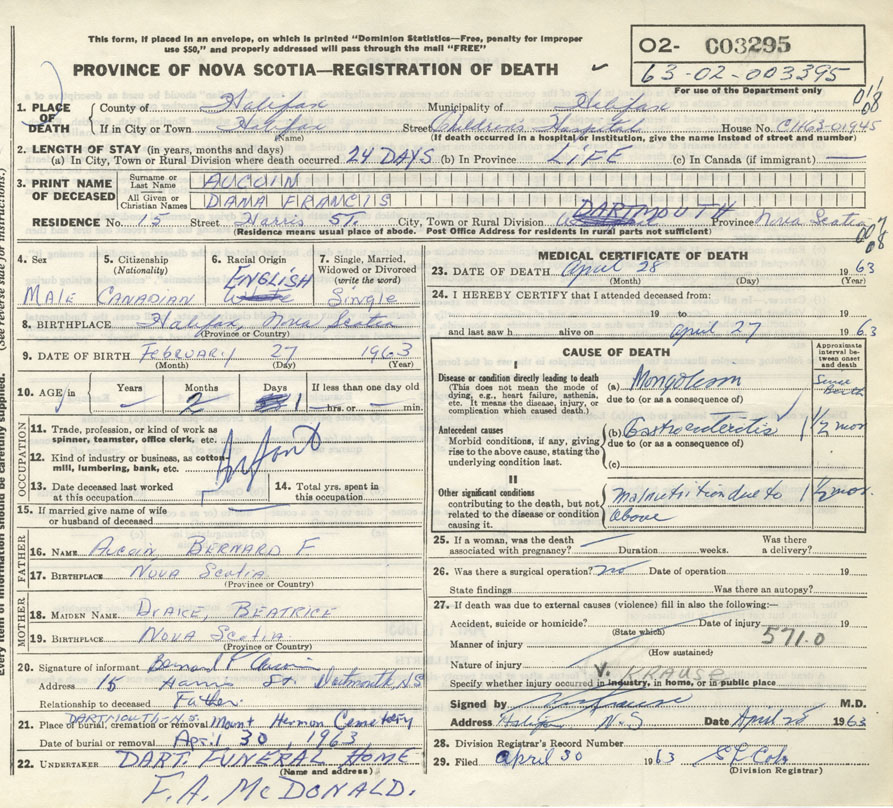 This form, if placed in an envelope, on which is printed "Dominion Statistics—Free, penalty for improper
use $50," and properly addressed will pass through the mail "FREE"
O2- C03295
63-02-003395
PROVINCE OF NOVA SCOTIA—REGISTRATION OF DEATH
For use of the Department only
1. PLACE OF DEATH
County of Halifax Municipality of Halifax
If in City or Town Halifax Street Children's Hospital House No. CH63-01945
(Name) (If death occurred in a hospital or institution, give the name instead of street and number)
2. LENGTH OF STAY (in years, months and days)
(a) In City, Town or Rural Division where death occurred 24 DAYS (b) In Province LIFE (c) In Canada (if immigrant) —
3. PRINT NAME OF DECEASED
Surname or Last Name AUCOIN
All Given or Christian Names DIANA FRANCIS
RESIDENCE No. 15 Street Harris ST. City, Town or Rural Division DARTMOUTH Province Nova Scotia
(Residence means usual place of abode. Post Office Address for residents in rural parts not sufficient)
4. Sex MALE
5. Citizenship (Nationality) CANADIAN
6. Racial Origin ENGLISH
7. Single, Married, Widowed or Divorced (write the word) Single
8. BIRTHPLACE Halifax, Nova Scotia
(Province or Country)
9. DATE OF BIRTH February 27 1963
(Month) (Day) (Year)
10. AGE in Years — Months 2 Days 1 If less than one day old — hrs. or — min.
OCCUPATION
11. Trade, profession, or kind of work as spinner, teamster, office clerk, etc.
Infant
12. Kind of industry or business, as cotton-mill, lumbering, bank, etc.
13. Date deceased last worked at this occupation
14. Total yrs. spent in this occupation
15. If married give name of wife or husband of deceased
FATHER
16. NAME AUCOIN, BERNARD F
17. BIRTHPLACE NOVA SCOTIA
(Province or Country)
MOTHER
18. MAIDEN NAME DRAKE, BEATRICE
19. BIRTHPLACE NOVA SCOTIA
(Province or Country)
20. Signature of informant Bernard F Aucoin
Address 15 Harris St. Dartmouth, NS
Relationship to deceased Father.
21. Place of burial, cremation or removal DARTMOUTH-N.S. Mount Hermon Cemetery
Date of burial or removal April 30, 1963
22. UNDERTAKER DART. FUNERAL HOME
(Name and address)
F.A. McDONALD.
MEDICAL CERTIFICATE OF DEATH
23. DATE OF DEATH April 28 1963
(Month) (Day) (Year)
24. I HEREBY CERTIFY that I attended deceased from:
19 to 19
and last saw h alive on april 27 1963
CAUSE OF DEATH
Approximate interval between onset and death
I
Disease or condition directly leading to death
(This does not mean the mode of dying, e.g., heart failure, asthenia, etc. It means the disease, injury, or complication which caused death.)
(a) Mongolism Since Birth
due to (or as a consequence of)
Antecedent causes
Morbid conditions, if any, giving rise to the above cause, stating the underlying condition last.
(b) Gastroenteritis 1 1/2 mos
due to (or as a consequence of)
(c)
II
Other significant conditions
contributing to the death, but not related to the disease or condition causing it.
Malnutrition due to above 1 1/2 mos.
25. If a woman, was the death associated with pregnancy? — Duration weeks. Was there a delivery?
26. Was there a surgical operation? no Date of operation 19
State findings Was there an autopsy?
27. If death was due to external causes (violence) fill in also the following:—
Accident, suicide or homicide? Date of injury 19
(State which)
571.0
Manner of injury
(How sustained)
Nature of injury
V. KRAUSE
Specify whether injury occurred in industry, in home, or in public place
Signed by M.D.
Address Halifax N.S Date April 1963
28. Division Registrar's Record Number
29. Filed April 30 1963
(Division Registrar)
(See reverse side for instructions.)
Every item of information should be carefully supplied.